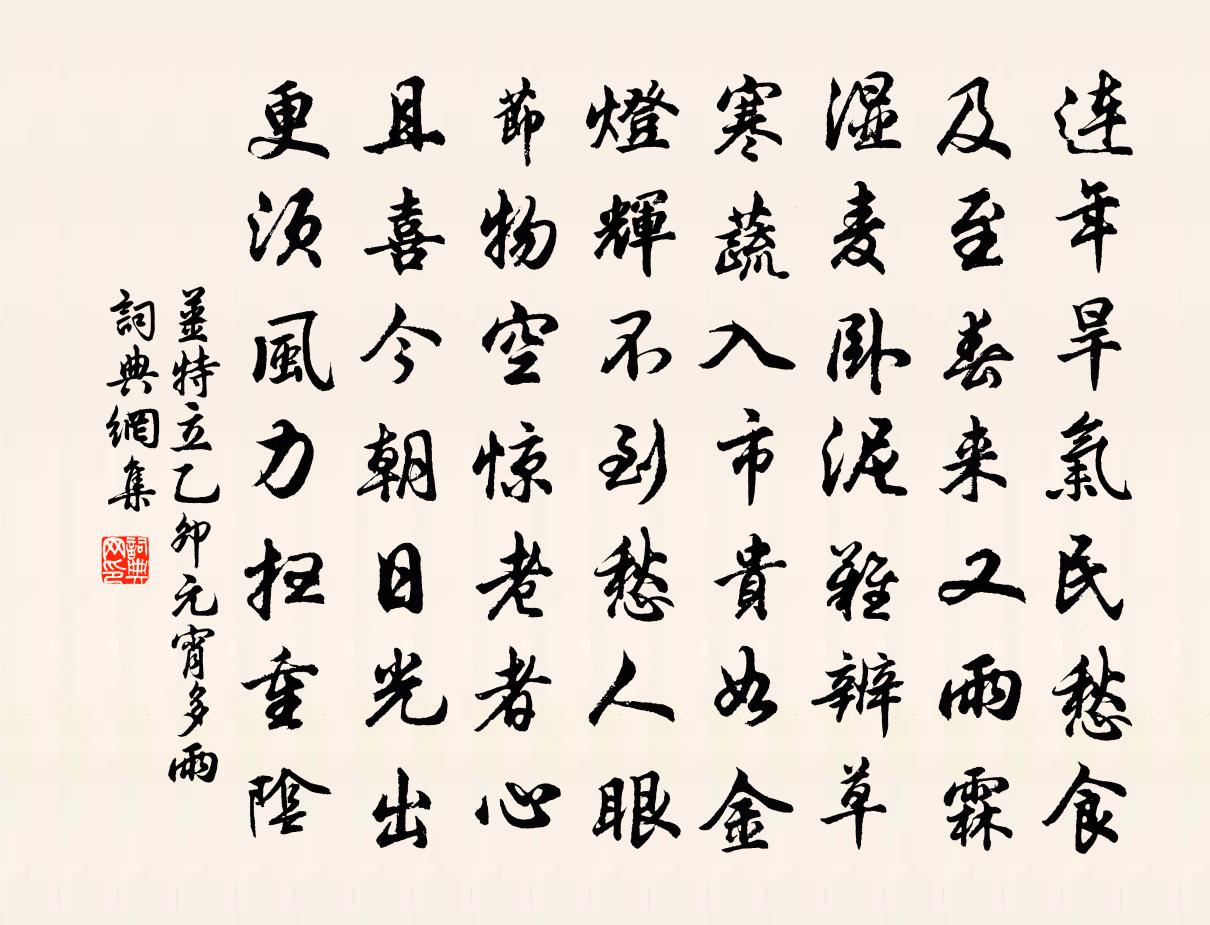 连年旱氣民愁食
及至春来又雨霖
湿麦卧泥難辨草
寒蔬入市貴如金
燈輝不到愁人眼
節物空惊老者心
且喜今朝日光出
更須風力扫重陰
薑特立乙卯元宵多雨
詞典網集
詞典网印